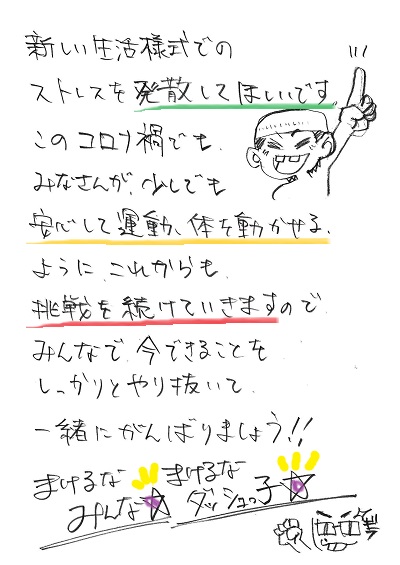 新しい生活様式での
ストレスを発散してほしいです
このコロナ禍でも、
みなさんが、少しでも
安心して運動、体を動かせる、
ように、これからも、
挑戦を続けていきますので
みんなで、今できることを
しっかりとやり抜いて、
一緒にがんばりましょう!!
まけるな まけるな
みんな☆ ダッシュっ子☆